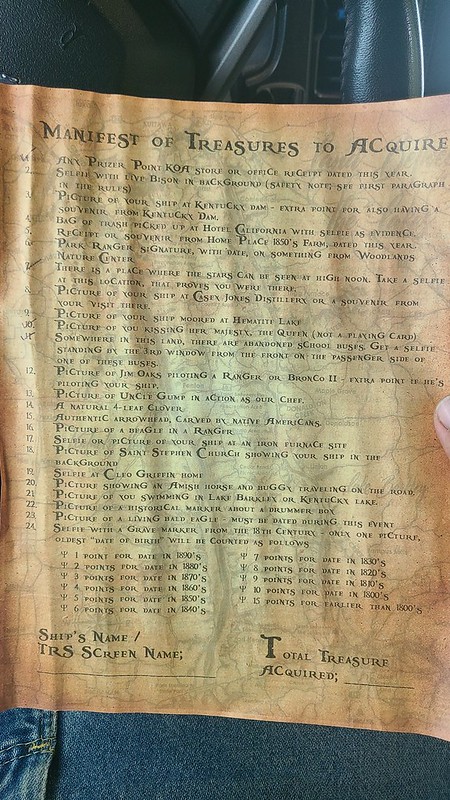 Manifest of Treasures to Acquire
Any Prizer Point KOA store or office receipt dated this year.
2. Selfie with live Bison in background (safety note; see first paragraph
in the rules)
3. Picture of your ship at Kentucky dam - extra point for also having a
souvenir from Kentucky Dam.
4. Bag of trash picked up at Hotel California with selfie as evidence.
5. Receipt or souvenir from Home Place 1850's Farm, dated this year.
6. Park Ranger signature, with date, on something from Woodlands
Nature Center.
There is a place where the stars can be seen at high noon. Take a selfie
at this location, that proves you were there.
8. Picture of your ship at Casey Jones Distillery or a souvenir from
your visit there.
9. Picture of your ship moored at Hematite Lake
10. Picture of you kissing her majesty, the Queen (not a playing card)
11. Somewhere in this land, there are abandoned school buses. Get a selfie
standing by the 3rd window from the front on the passenger side of
one of these buses.
12. Picture of Jim Oaks piloting a Ranger or Bronco II - extra point if he's
piloting your ship.
13. Picture of Uncle Gump in action as our chef.
14. A natural 4-leaf clover
15. Authentic arrowhead, carved by native Americans.
16. Picture of a beagle in a Ranger.
17. Selfie or picture of your ship at an iron furnace site
18. Picture of Saint Stephen Church showing your ship in the
background
19. Selfie at Cleo Griffin home
20. Picture showing an Amish horse and buggy traveling on the road.
21. Picture of you swimming in Lake Barkley or Kentucky lake.
22. Picture of a historical marker about a drummer boy
23. Picture of a living bald eagle - must be dated during this event
24. Selfie with a grave marker from the 18th century - only one picture,
oldest "date of birth" will be counted as follows
Ψ 1 point for date in 1890's
Ψ 2 points for date in 1880's
Ψ 3 points for date in 1870's
Ψ 4 points for date in 1860's
Ψ 5 points for date in 1850's
Ψ 6 points for date in 1840's
Ψ 7 points for date in 1830's
Ψ 8 points for date in 1820's
Ψ 9 points for date in 1810's
Ψ 10 points for date in 1800's
Ψ 15 points for earlier than 1800's
Ship's Name /
TRS Screen Name;
Total Treasure
Acquired;